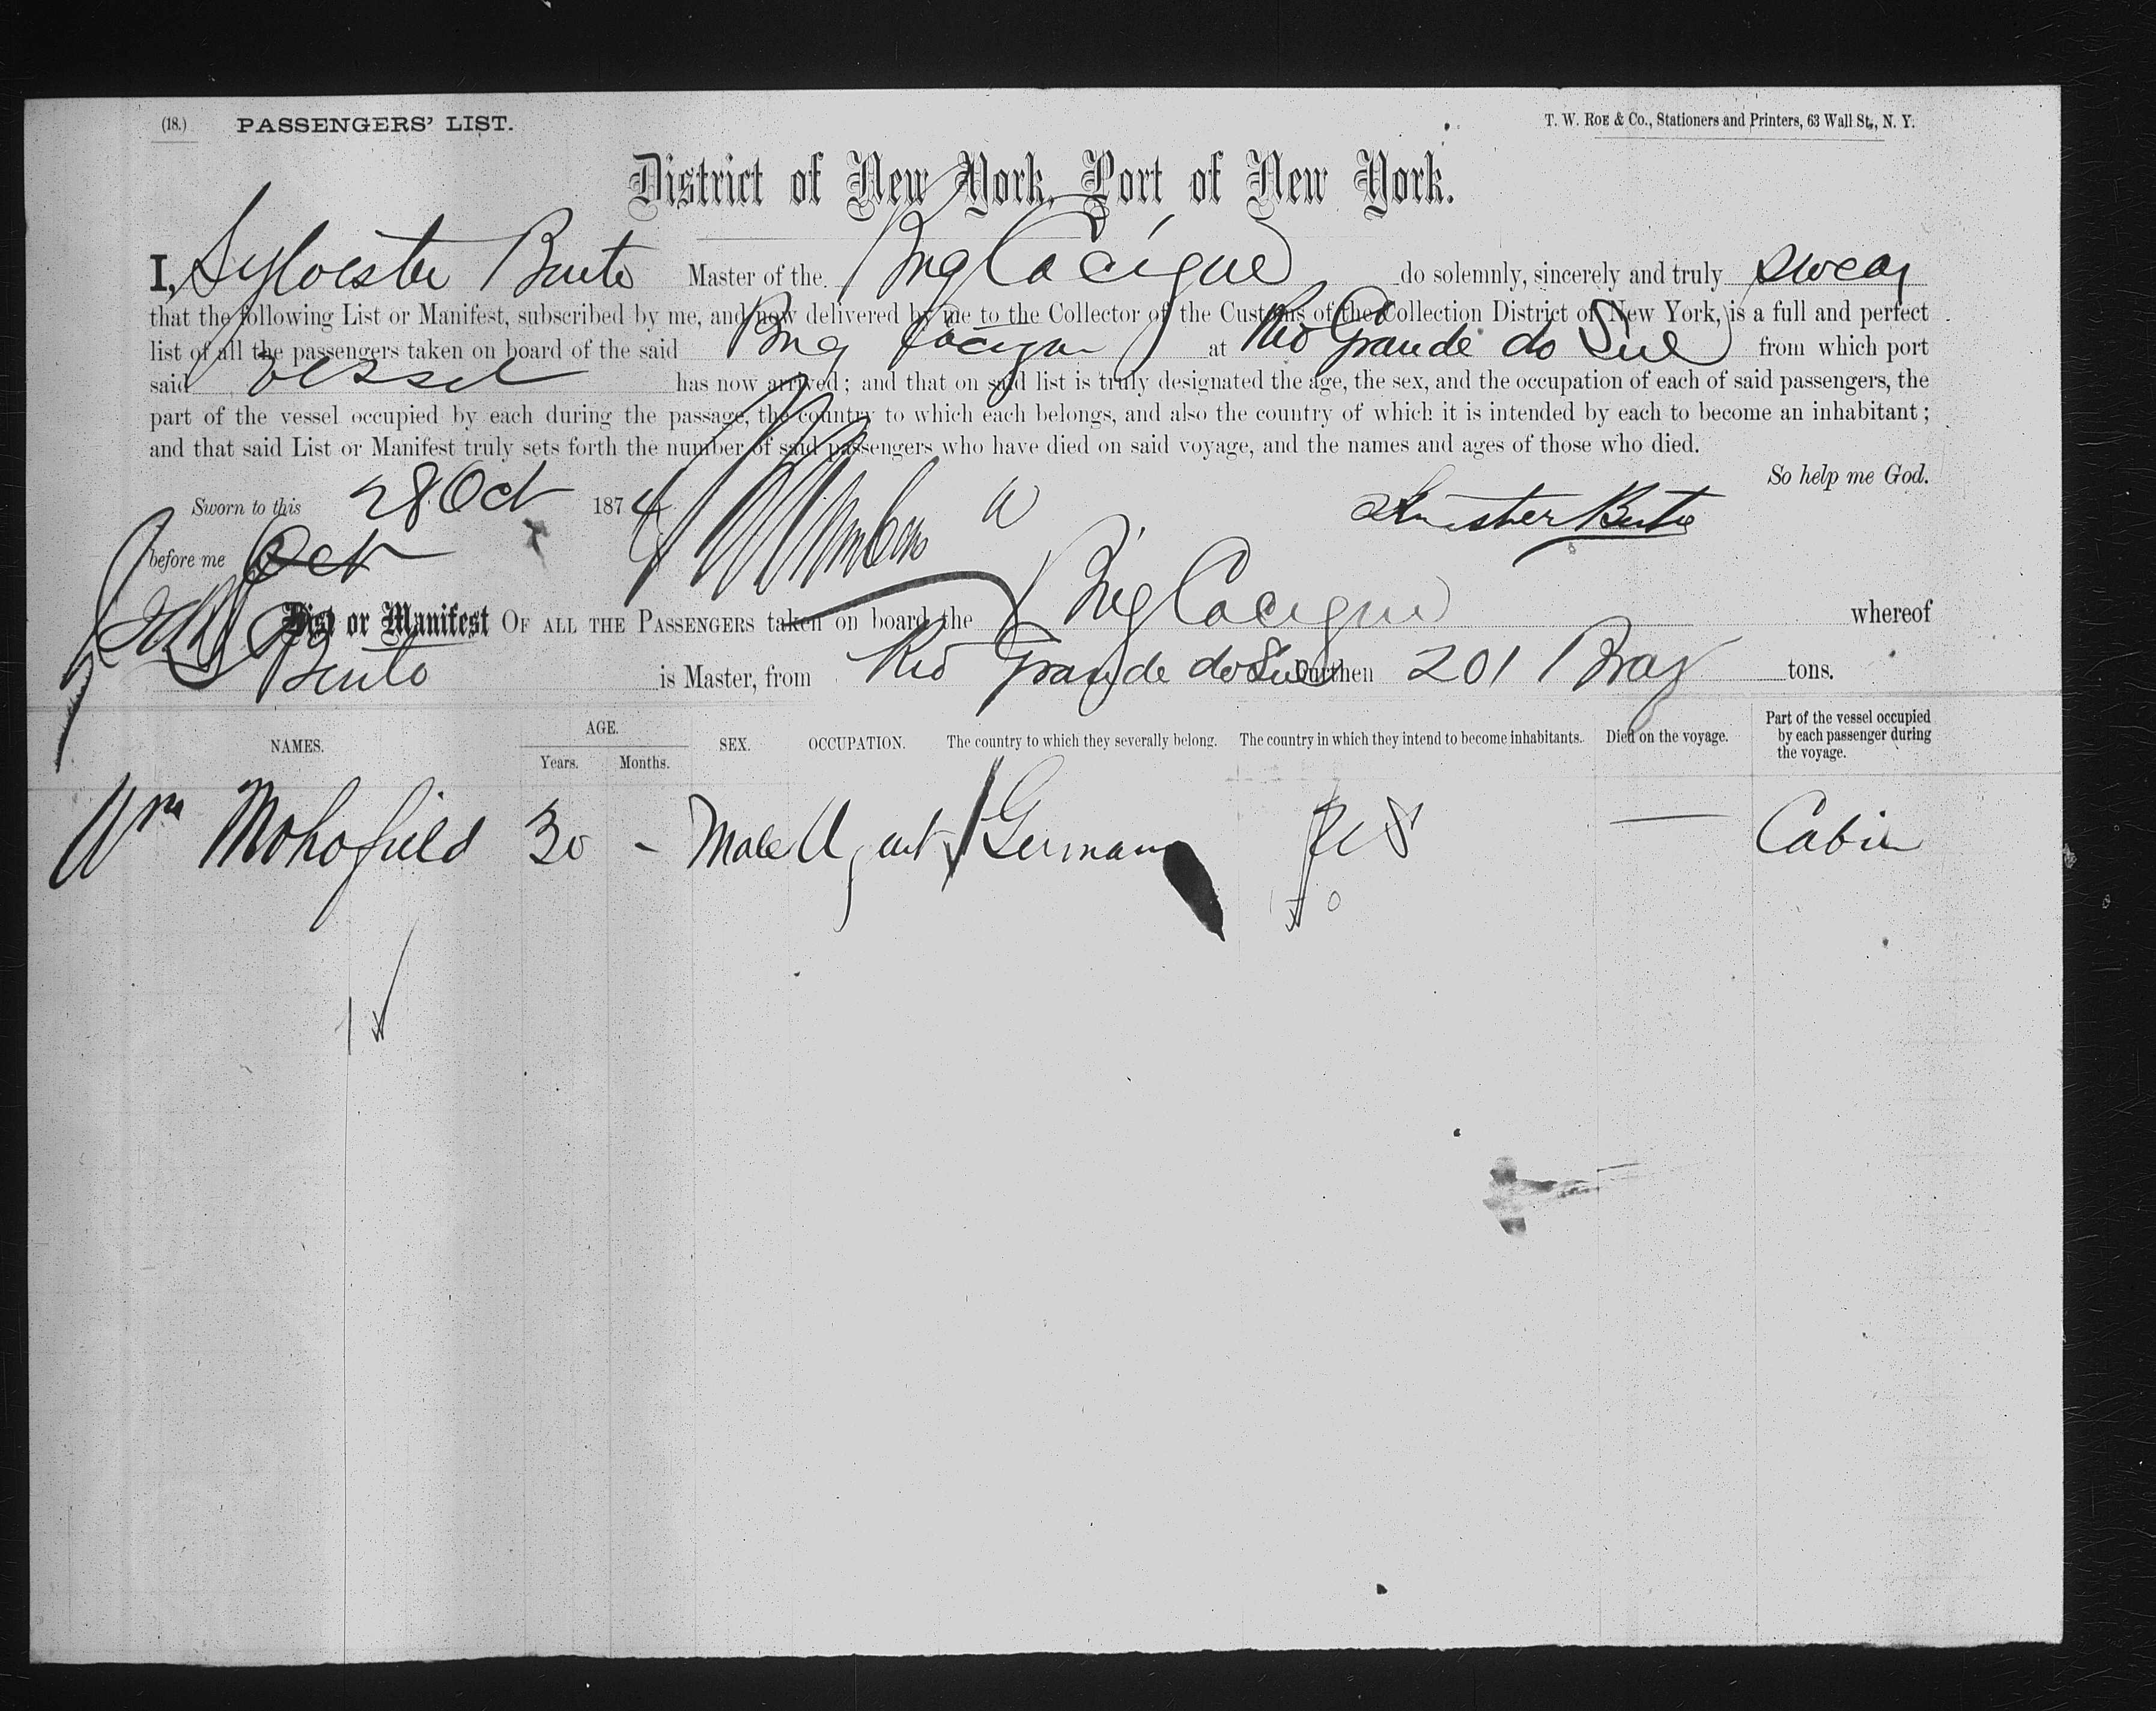 (18.) PASSENGERS' LIST. T. W. ROE & Co., Stationers and Printers, 63 Wall St., N. Y.
District of New York, Port of New York.
I, Sylvester Bento Master of the Brig Cacique do solemnly, sincerely and truly swear
that the following List or Manifest, subscribed by me, and now delivered by me to the Collector of the Customs of the Collection District of New York, is a full and perfect
list of all the passengers taken on board of the said Brig Cacique at Rio Grande do Sul from which port
said vessel has now arrived; and that on said list is truly designated the age, the sex, and the occupation of each of said passengers, the
part of the vessel occupied by each during the passage, the country to which each belongs, and also the country of which it is intended by each to become an inhabitant;
and that said List or Manifest truly sets forth the number of said passengers who have died on said voyage, and the names and ages of those who died.
So help me God.
Sworn to this 28 Oct 1874
before me
List or Manifest OF ALL THE PASSENGERS taken on board the Brig Cacique whereof
Bento is Master, from Rio Grande do Sul burthen 201 tons.
NAMES. AGE. Years. Months. SEX. OCCUPATION. The country to which they severally belong. The country in which they intend to become inhabitants. Died on the voyage. Part of the vessel occupied by each passenger during the voyage.
Wm Mohofield 30 - Male Agent Germany US — Cabin